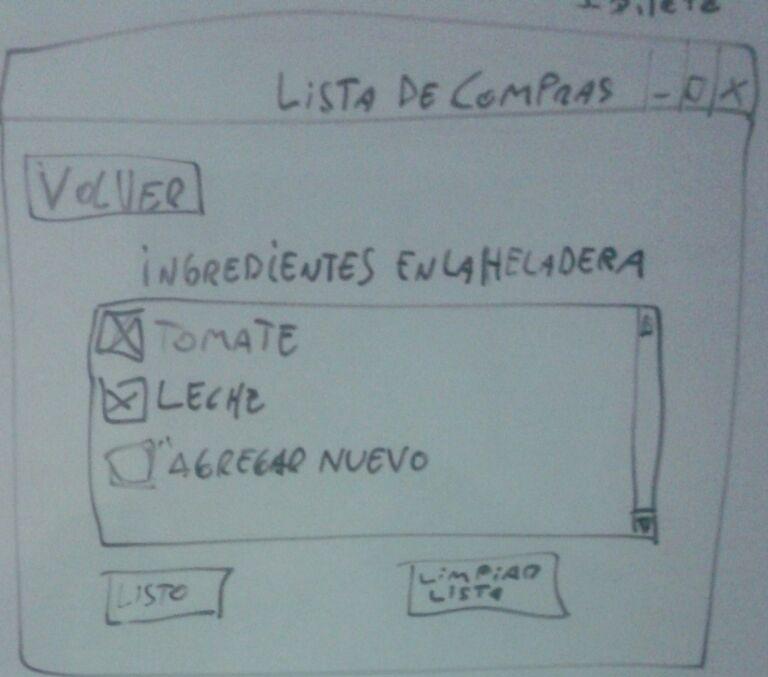 LISTA DE COMPRAS - □ X
VOLVER
INGREDIENTES EN LA HELADERA
TOMATE
LECHE
"AGREGAR NUEVO
LISTO
LIMPIAR
LISTA